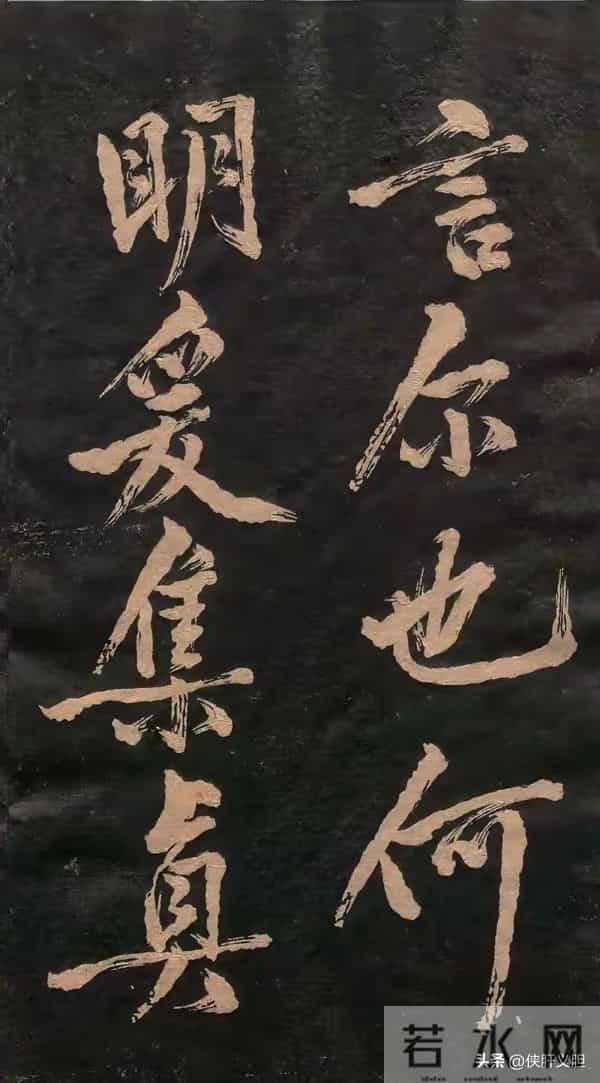 言尔也何
明爰集真
若水网
头条 @侠肝义胆